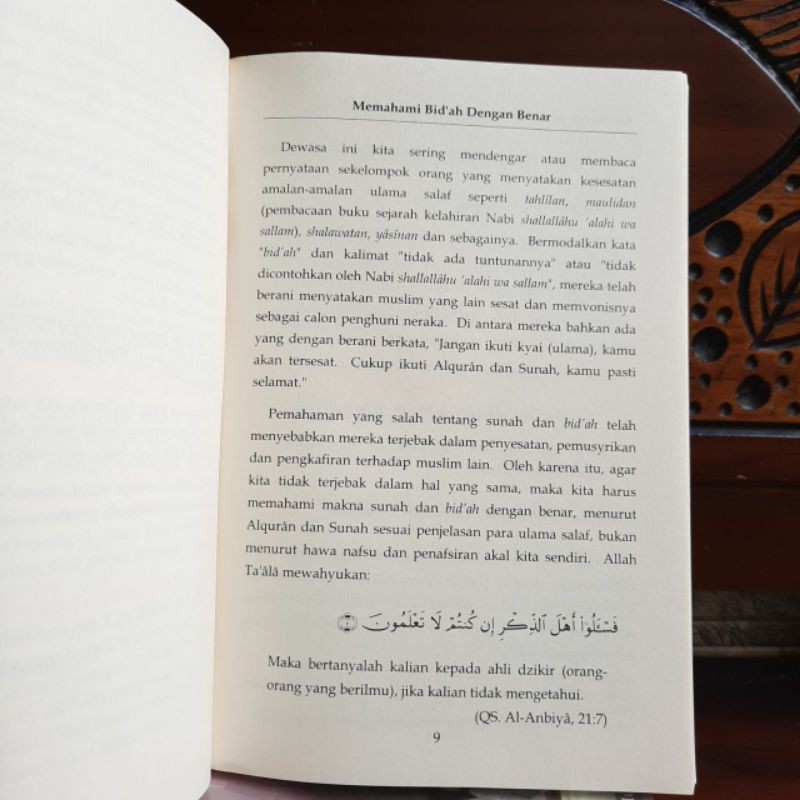 Memahami Bid'ah Dengan Benar
Dewasa ini kita sering mendengar atau membaca
pernyataan sekelompok orang yang menyatakan kesesatan
amalan-amalan ulama salaf seperti tahlîlan, maulidan
(pembacaan buku sejarah kelahiran Nabi shallallâhu 'alahi wa
sallam), shalawatan, yâsînan dan sebagainya. Bermodalkan kata
"bid'ah" dan kalimat "tidak ada tuntunannya" atau "tidak
dicontohkan oleh Nabi shallallâhu 'alahi wa sallam", mereka telah
berani menyatakan muslim yang lain sesat dan memvonisnya
sebagai calon penghuni neraka. Di antara mereka bahkan ada
yang dengan berani berkata, "Jangan ikuti kyai (ulama), kamu
akan tersesat. Cukup ikuti Alqurân dan Sunah, kamu pasti
selamat."
Pemahaman yang salah tentang sunah dan bid'ah telah
menyebabkan mereka terjebak dalam penyesatan, pemusyrikan
dan pengkafiran terhadap muslim lain. Oleh karena itu, agar
kita tidak terjebak dalam hal yang sama, maka kita harus
memahami makna sunah dan bid'ah dengan benar, menurut
Alqurân dan Sunah sesuai penjelasan para ulama salaf, bukan
menurut hawa nafsu dan penafsiran akal kita sendiri. Allah
Ta'âlâ mewahyukan:
فَسْـَٔلُوٓا۟ أَهْلَ ٱلذِّكْرِ إِن كُنتُمْ لَا تَعْلَمُونَ ۝
Maka bertanyalah kalian kepada ahli dzikir (orang-
orang yang berilmu), jika kalian tidak mengetahui.
(QS. Al-Anbiyâ, 21:7)
9